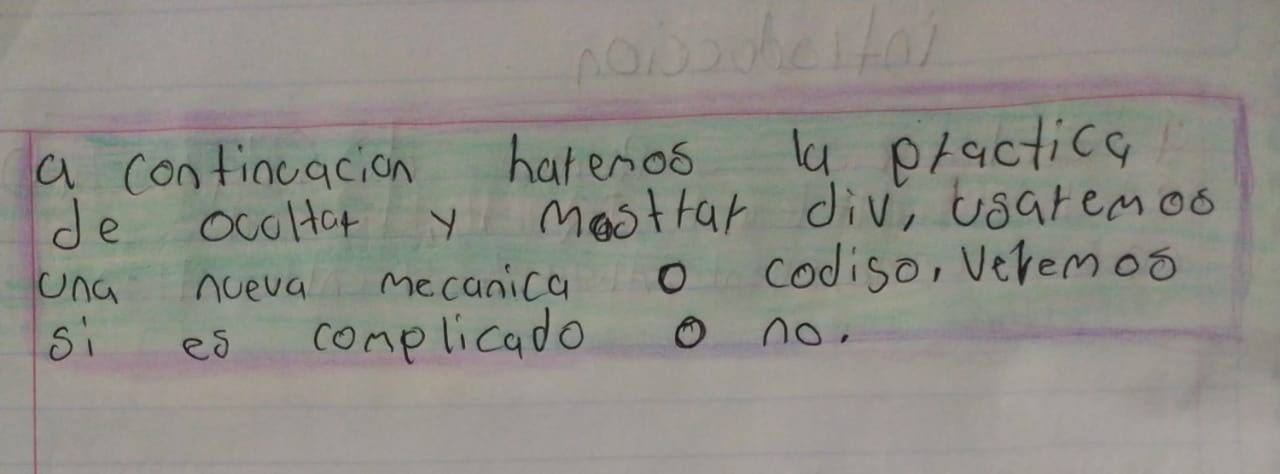 introduccion
a contincacion haremos la practica
de ocultar y mostrar div, usaremos
una nueva mecanica o codiso, Veremos
si es complicado o no.